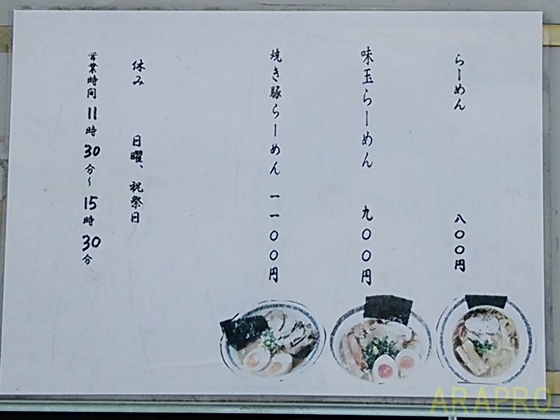 らーめん 八〇〇円
味玉らーめん 九〇〇円
焼き豚らーめん 一一〇〇円
休み 日曜、祝祭日
営業時間 11時30分~15時30分
ARAPRO